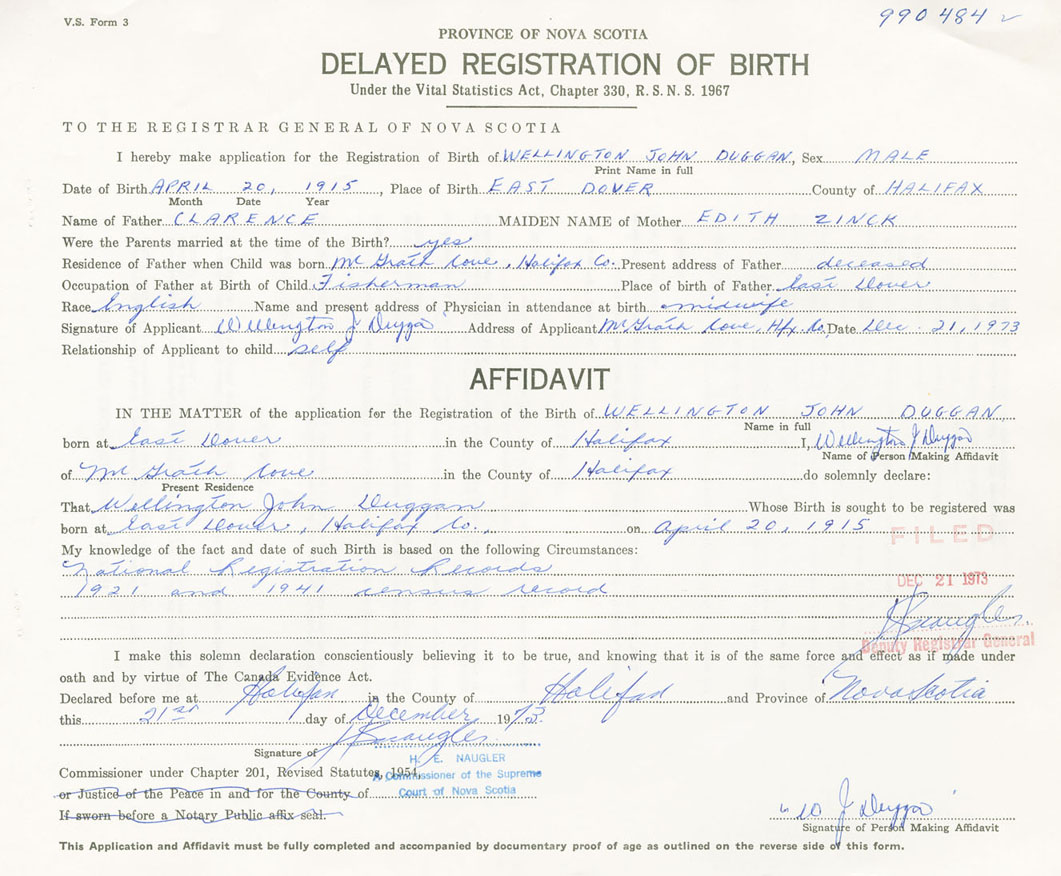 V.S. Form 3
990 484 ✓
PROVINCE OF NOVA SCOTIA
DELAYED REGISTRATION OF BIRTH
Under the Vital Statistics Act, Chapter 330, R.S.N.S. 1967
TO THE REGISTRAR GENERAL OF NOVA SCOTIA
I hereby make application for the Registration of Birth of WELLINGTON JOHN DUGGAN, Sex MALE
Print Name in full
Date of Birth APRIL 20, 1915, Place of Birth EAST DOVER County of HALIFAX
Month Date Year
Name of Father CLARENCE MAIDEN NAME of Mother EDITH ZINCK
Were the Parents married at the time of the Birth? yes
Residence of Father when Child was born McGrath Cove, Halifax Co. Present address of Father deceased
Occupation of Father at Birth of Child Fisherman Place of birth of Father East Dover
Race English Name and present address of Physician in attendance at birth midwife
Signature of Applicant Wellington J Duggan Address of Applicant McGrath Cove, Hfx Co, Date Dec. 21, 1973
Relationship of Applicant to child self
AFFIDAVIT
IN THE MATTER of the application for the Registration of the Birth of WELLINGTON JOHN DUGGAN
Name in full
born at East Dover in the County of Halifax I, Wellington J Duggan
Name of Person Making Affidavit
of McGrath Cove in the County of Halifax do solemnly declare:
Present Residence
That Wellington John Duggan Whose Birth is sought to be registered was
born at East Dover, Halifax Co., on April 20, 1915
FILED
My knowledge of the fact and date of such Birth is based on the following Circumstances:
National Registration Records
DEC 21 1973
1921 and 1941 census record
H E Naugler
Deputy Registrar General
I make this solemn declaration conscientiously believing it to be true, and knowing that it is of the same force and effect as if made under
oath and by virtue of The Canada Evidence Act.
Declared before me at Halifax in the County of Halifax and Province of Nova Scotia
this 21st day of December 1973.
H E Naugler
Signature of
H. E. NAUGLER
Commissioner under Chapter 201, Revised Statutes, 1954,
A Commissioner of the Supreme
or Justice of the Peace in and for the County of
Court of Nova Scotia
If sworn before a Notary Public affix seal.
W J Duggan
Signature of Person Making Affidavit
This Application and Affidavit must be fully completed and accompanied by documentary proof of age as outlined on the reverse side of this form.